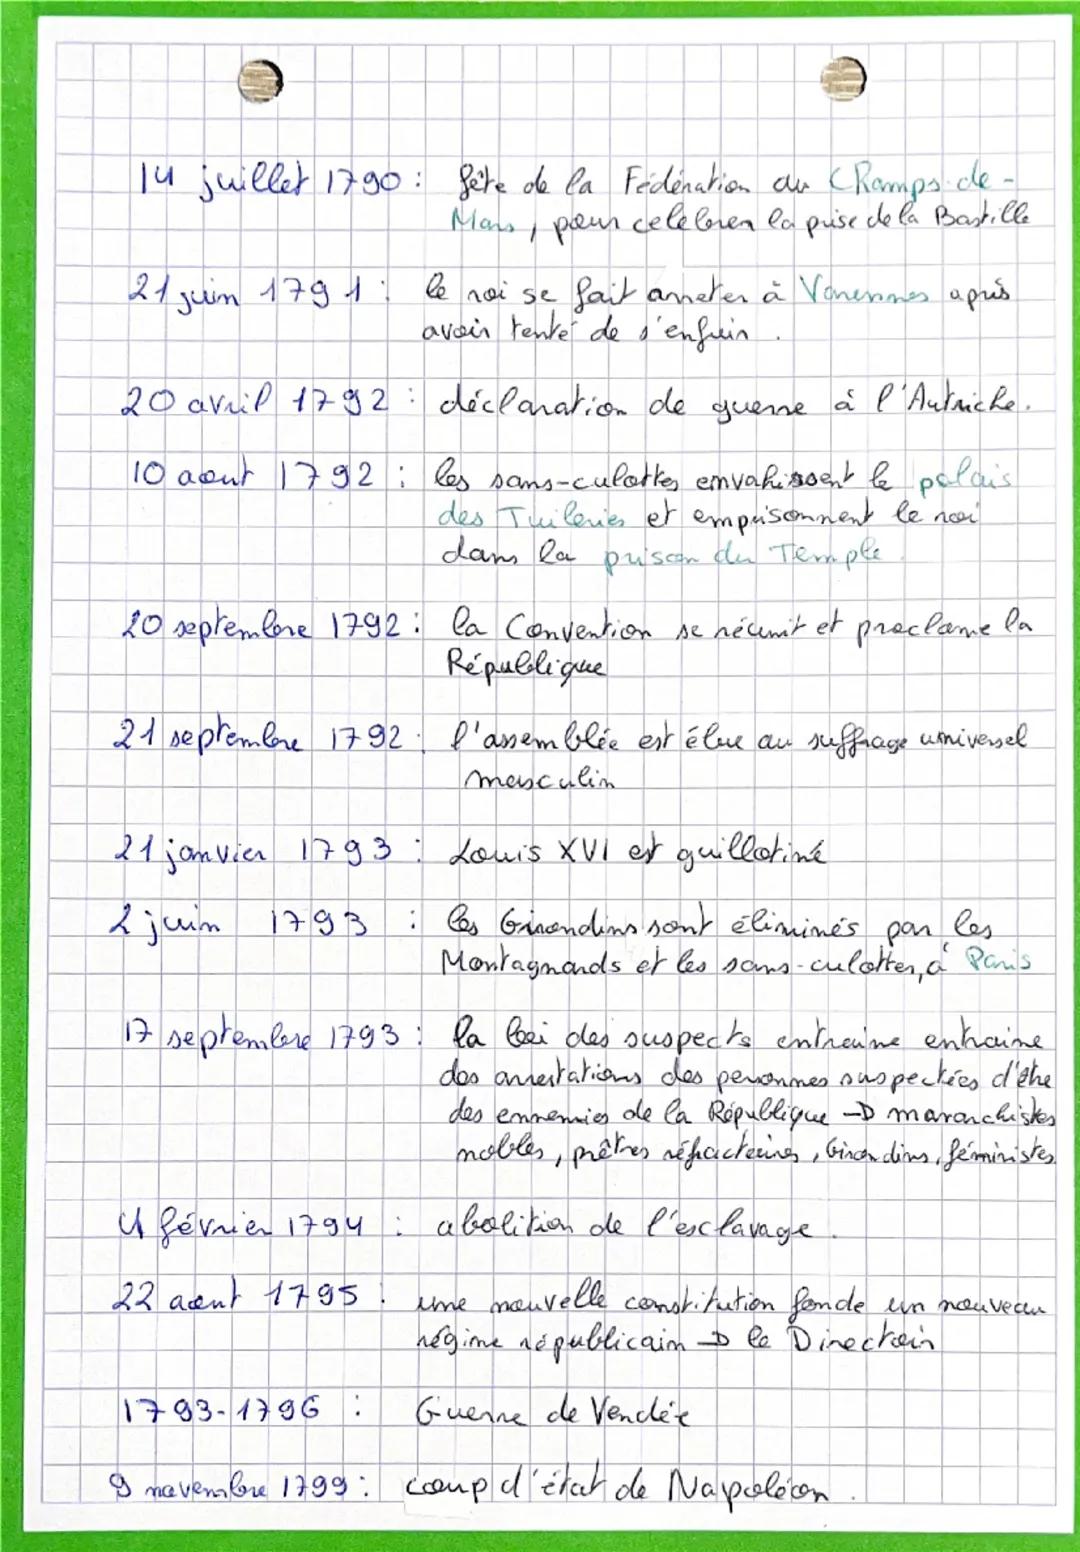 14 juillet 1790 : fête de la Fédération du Champs-de-
Mars, pour celebrer la prise de la Bastille
21 juin 1791 : le roi se fait arreter à Varennes après
avoir tenté de s'enfuir.
20 avril 1792 : déclaration de guerre à l'Autriche.
10 aout 1792 : les sans-culottes envahissent le palais
des Tuileries et emprisonnent le roi
dans la prison du Temple.
20 septembre 1792 : la Convention se réunit et proclame la
République
21 septembre 1792 : l'assemblée est élue au suffrage universel
masculin
21 janvier 1793 : Louis XVI est guillotiné
2 juin 1793 : les Girondins sont éliminés par les
Montagnards et les sans-culottes, à Paris
17 septembre 1793 : la loi des suspects entraine entraine
des arrestations des personnes suspectées d'être
des ennemies de la République → marchistes
nobles, prêtres réfractaires, Girondins, féministes.
4 février 1794 : abolition de l'esclavage.
22 aout 1795 : une nouvelle constitution fonde un nouveau
régime républicain → le Directoir
1793-1796 : Guerre de Vendée
9 novembre 1799 : coup d'état de Napoléon.